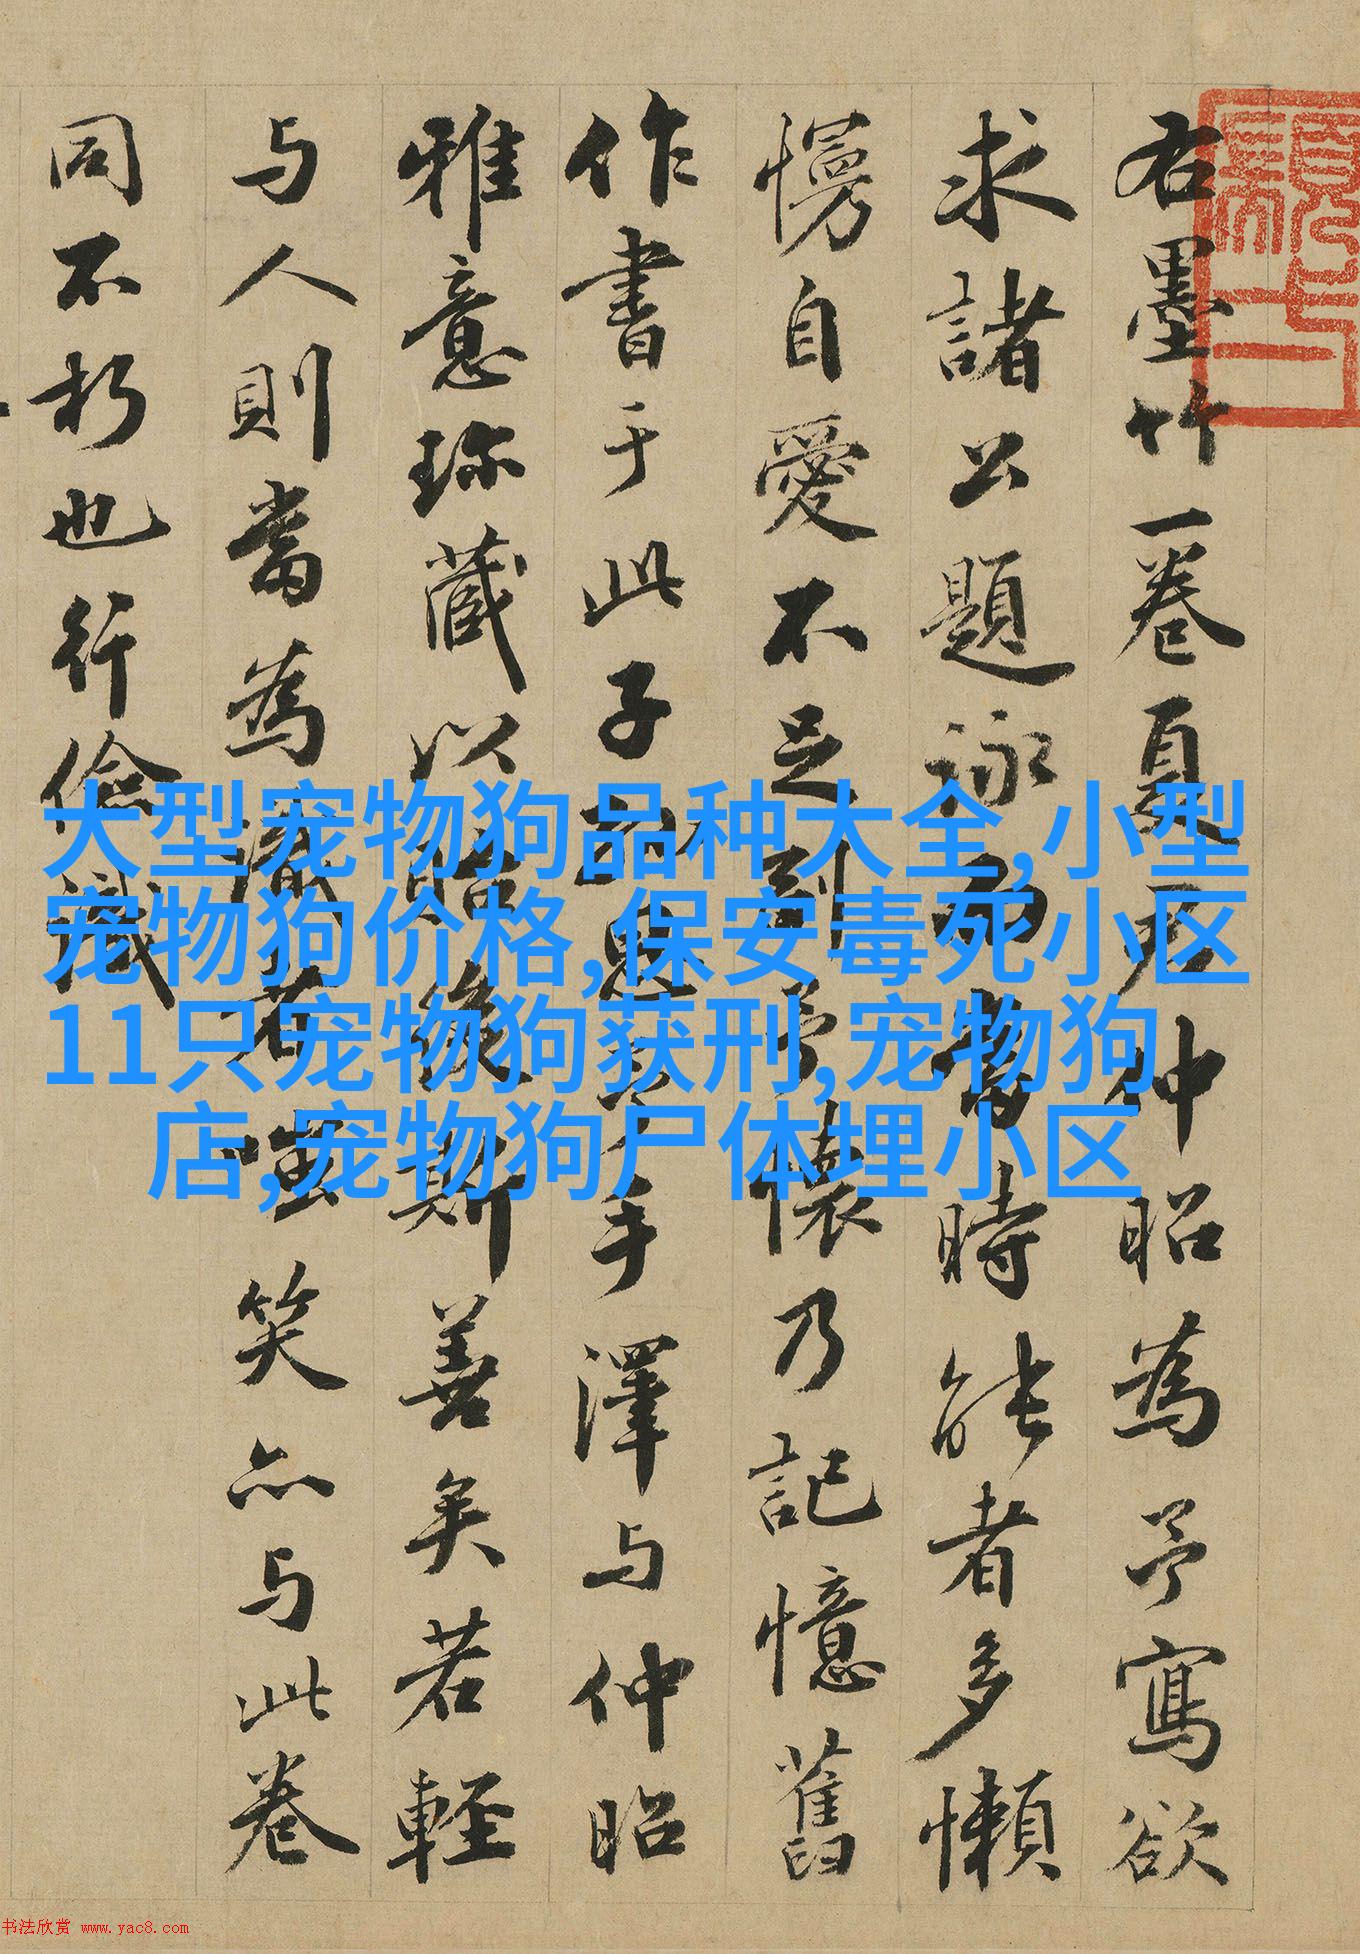 右墨竹一卷夏君仲昭為予寫欲
求諸公題詠而當時能者多懶
慢自愛不足到予懷乃記憶舊
作書于此子思予手澤与仲昭
雅意珍藏以貽後斯善矣若輕
与人則當為識者嗤笑亦与此卷
同不朽也行儉識
大型宠物狗品种大全,小型
宠物狗价格,保安毒死小区
11只宠物狗获刑,宠物狗
店,宠物狗尸体埋小区
书法欣赏 www.yac8.com